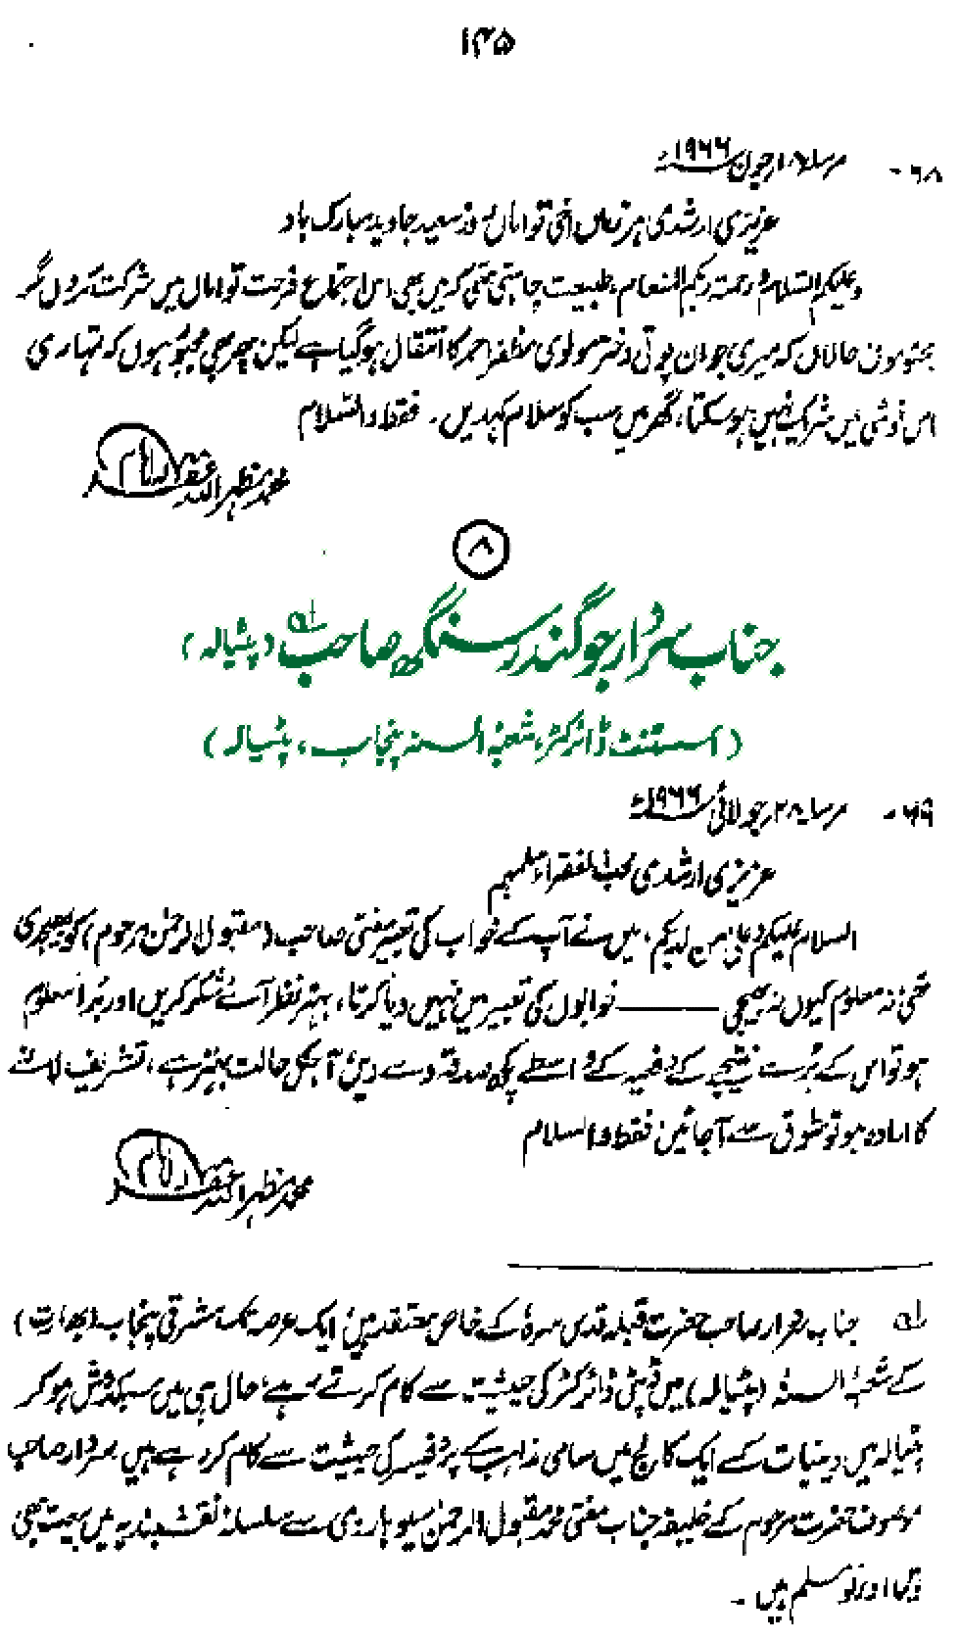 ۱۴۵
۶۸- مرسلہ ۱۸ / جون ۱۹۶۶ء
عزیزی ارشدی سعید جاوید مبارک باد
وعلیکم السلام طبیعت چاہتی تھی کہ میں بھی اس اجتماع فرحت تواماں میں شرکت کروں گو
حالاں کہ میری جوان پوتی دختر مولوی مظفر احمد کا انتقال ہوگیا ہے لیکن پھر بھی مجبور ہوں کہ تمہاری
اس خوشی میں شریک نہیں ہو سکتا، گھر میں سب کو سلام کہدیں۔ فقط والسلام
محمد مظہر اللہ غفرلہ
۸
جناب سردار جوگندر سنگھ صاحب لہ (پٹیالہ)
(اسسٹنٹ ڈائرکٹر، شعبۂ السنہ پنجاب، پٹیالہ)
۶۹- مرسلہ ۲۸ / جولائی ۱۹۶۶ء
عزیزی ارشدی محب الفقراء سلمہم
السلام علیکم میں نے آپ کے خواب کی تعبیر مفتی صاحب (مقبول الرحمٰن مرحوم) کو بھیجدی
تھی نہ معلوم کیوں نہ بھیجی ——— خوابوں کی تعبیر میں نہیں دیا کرتا، بہتر نظر آئے شکر کریں اور بُرا معلوم
ہو تو اس کے بُرے نتیجے کے دفعیہ کے واسطے کچھ صدقہ دے دیں، آجکل حالت بہتر ہے، تشریف لانے
کا ارادہ ہو تو شوق سے آجائیں فقط والسلام
محمد مظہر اللہ غفرلہ
لہ جناب سردار صاحب حضرت قبلہ قدس سرہٗ کے خاص معتقد ہیں، ایک عرصہ تک مشرقی پنجاب (بھارت)
کے شعبۂ السنہ (پٹیالہ) میں ڈپٹی ڈائرکٹر کی حیثیت سے کام کرتے رہے، حال ہی میں سبکدوش ہو کر
پٹیالہ میں دینیات کے ایک کالج میں سامی مذاہب کے پروفیسر کی حیثیت سے کام کر رہے ہیں، سردار صاحب
موصوف حضرت مرحوم کے خلیفہ جناب مفتی محمد مقبول الرحمٰن سیوہاروی سے سلسلۂ نقشبندیہ میں بیعت بھی
ہیں اور نو مسلم ہیں۔